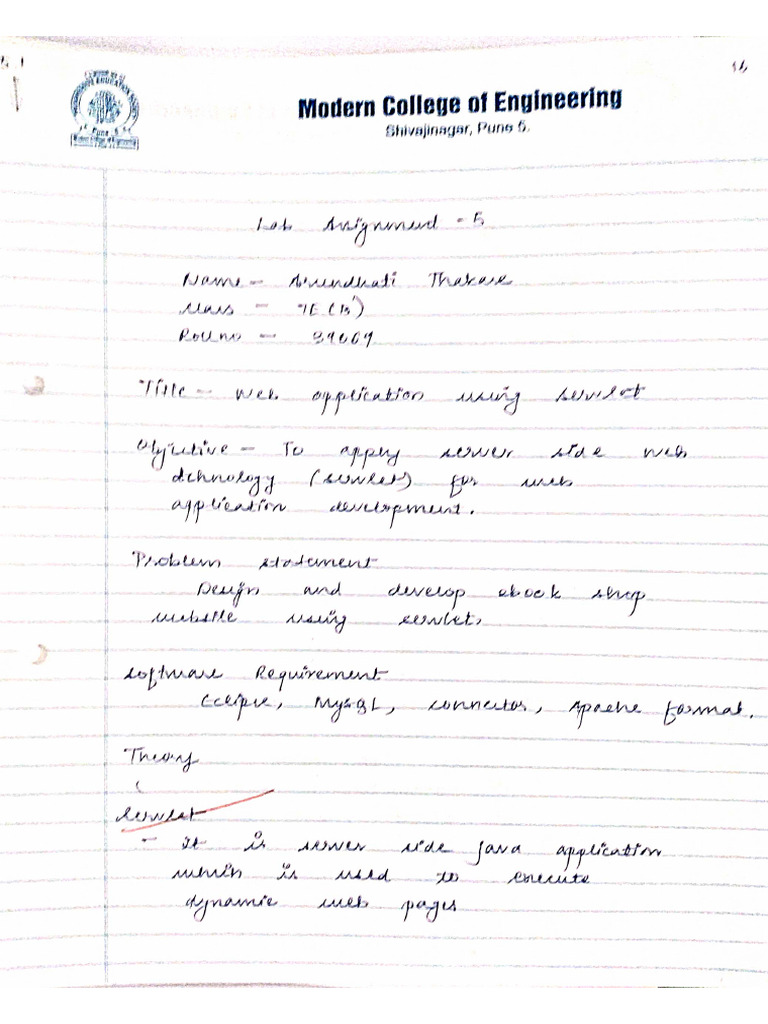 Modern College of Engineering
Shivajinagar, Pune 5.
Lab Assignment - 5
Name - Arundhati Thakare
Class - TE (B)
Roll no - 39069
Title - Web application using servlet
Objective - To apply server side web
technology (servlet) for web
application development.
Problem statement
Design and develop ebook shop
website using servlet.
Software Requirement
Eclipse, MySQL, connector, Apache format.
Theory
Servlet
- It is server side java application
which is used to execute
dynamic web pages